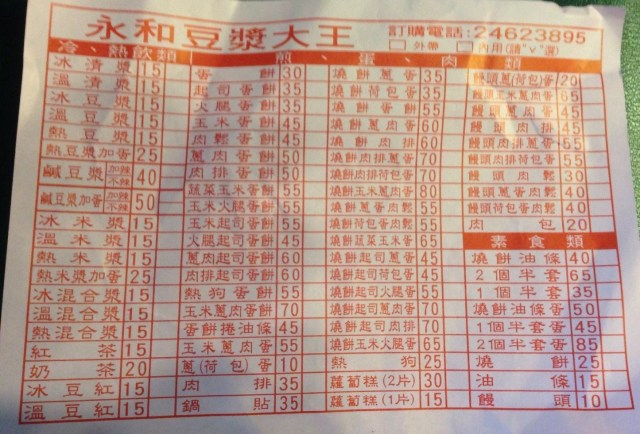 永和豆漿大王
訂購電話:24623895
□外帶 □內用(請"v"選)
冷、熱飲類
冰清漿 15
溫清漿 15
冰豆漿 15
溫豆漿 15
熱豆漿 15
熱豆漿加蛋 25
鹹豆漿 加辣 不辣 40
鹹豆漿加蛋 加辣 不辣 50
冰米漿 15
溫米漿 15
熱米漿 15
熱米漿加蛋 25
冰混合漿 15
溫混合漿 15
熱混合漿 15
紅茶 15
奶茶 20
冰豆紅 15
溫豆紅 15
煎、蛋、肉類
蛋餅 30
起司蛋餅 35
火腿蛋餅 35
玉米蛋餅 45
肉鬆蛋餅 45
蔥肉蛋餅 50
肉排蛋餅 50
蔬菜玉米蛋餅 55
玉米火腿蛋餅 55
玉米起司蛋餅 55
火腿起司蛋餅 45
蔥肉起司蛋餅 60
肉排起司蛋餅 60
熱狗蛋餅 55
玉米蔥肉蛋餅 70
蛋餅捲油條 45
玉米蔥肉蛋 55
蔥(荷包)蛋 10
肉排 35
鍋貼 35
燒餅蔥蛋 35
燒餅荷包蛋 35
燒餅蛋餅 55
燒餅蔥肉蛋 60
燒餅肉排 60
燒餅肉排蔥蛋 70
燒餅肉排荷包蛋 70
燒餅玉米蔥肉蛋 80
燒餅蔥蛋肉鬆 55
燒餅荷包蛋肉鬆 55
燒餅蔬菜玉米蛋 65
燒餅起司蔥蛋 45
燒餅起司荷包蛋 45
燒餅起司火腿蛋 55
燒餅起司蔥肉蛋 70
燒餅起司肉排 70
燒餅玉米火腿蛋 65
熱狗 25
蘿蔔糕(2片) 30
蘿蔔糕(1片) 15
饅頭蔥(荷包)蛋 20
饅頭玉米蔥肉蛋 65
饅頭蔥肉蛋 45
饅頭肉排 45
饅頭肉排蔥蛋 55
饅頭肉排荷包蛋 55
饅頭肉鬆 30
饅頭蔥蛋肉鬆 40
饅頭荷包蛋肉鬆 40
肉包 20
素食類
燒餅油條 40
2個半套蛋 65
1個半套 35
燒餅油條蛋 50
1個半套蛋 45
2個半套蛋 85
燒餅 25
油條 15
饅頭 10